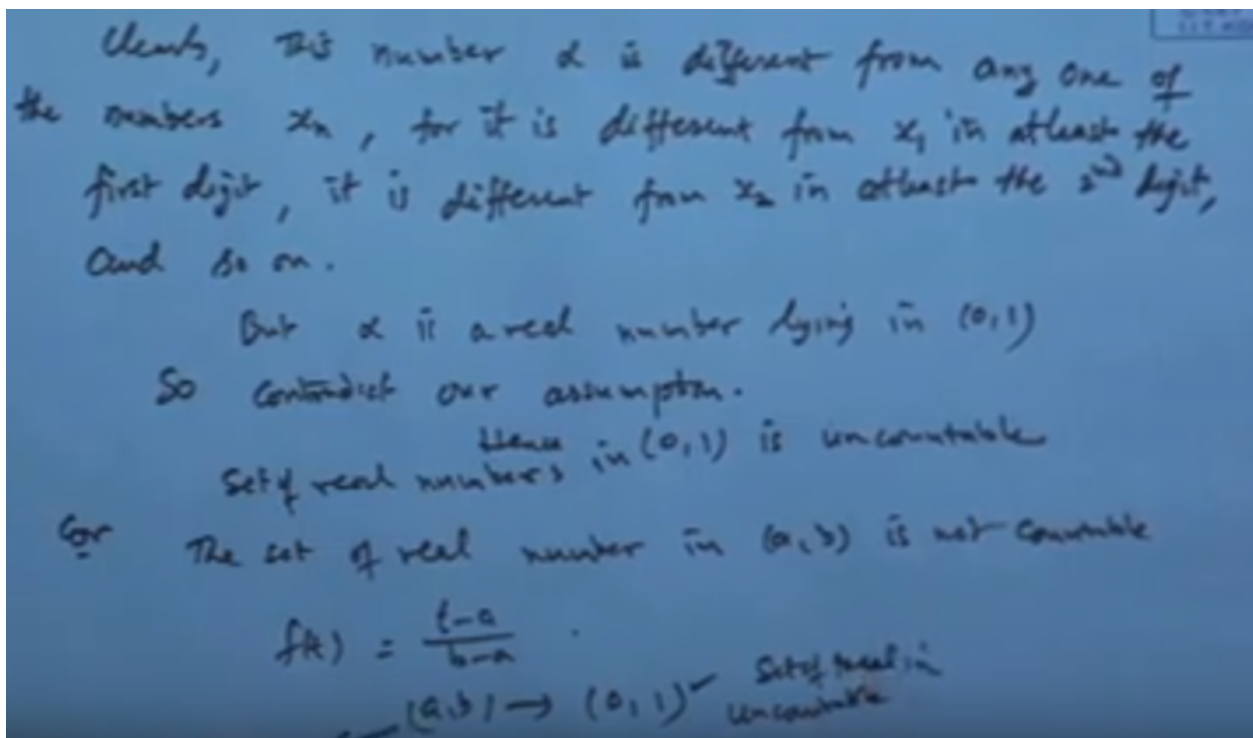 Clearly, this number α is different from any one of
the numbers xₙ, for it is different from x₁ in atleast the
first digit, it is different from x₂ in atleast the 2nd digit,
and so on.
But α is a real number lying in (0,1)
So contradict our assumption.
Hence
Set of real numbers in (0,1) is uncountable
Cor The set of real number in (a,b) is not countable
f(t) = (t-a)/(b-a).
(a,b) → (0,1) Set of real in
uncountable